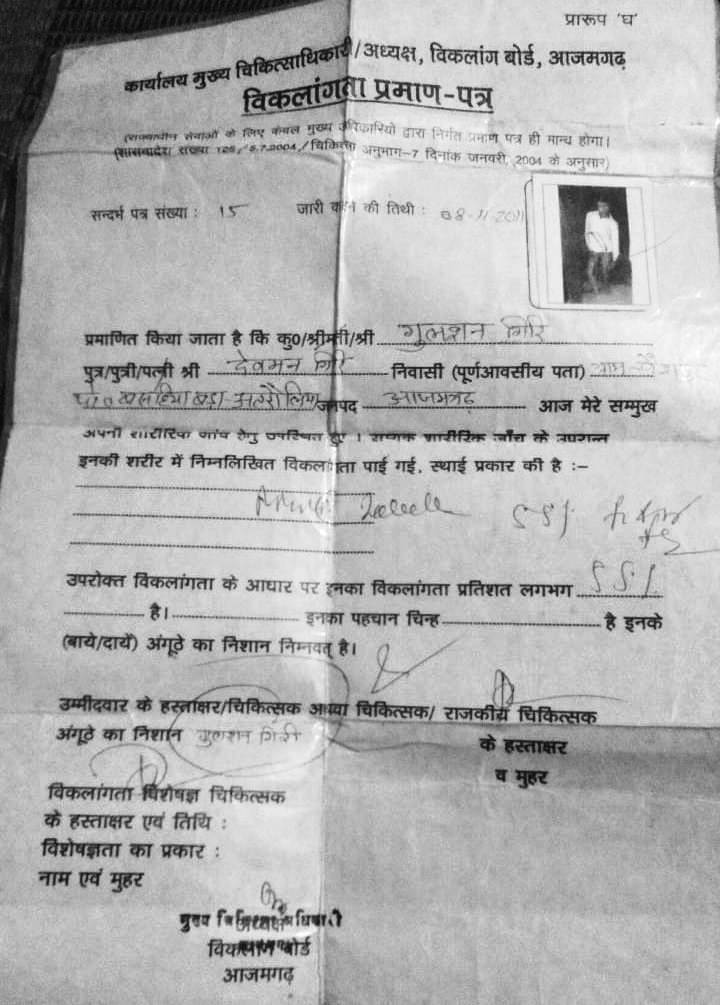 प्रारूप 'घ'
कार्यालय मुख्य चिकित्साधिकारी/अध्यक्ष, विकलांग बोर्ड, आजमगढ़
विकलांगता प्रमाण-पत्र
सेवाओं के लिए केवल मुख्य द्वारा निर्गत प्रमाण पत्र ही मान्य होगा।
(शासनादेश संख्या चिकित्सा अनुभाग-7 दिनांक जनवरी, 2004 के अनुसार)
सन्दर्भ पत्र संख्या : 15 जारी करने की तिथी : 08-11-2011
प्रमाणित किया जाता है कि कु0/श्रीमती/श्री गुलशन गिरि
पुत्र/पुत्री/पत्नी श्री देवमन गिरि निवासी (पूर्णआवसीय पता) ग्राम
जनपद आजमगढ़ आज मेरे सम्मुख
अपनी शारीरिक जांच हेतु उपस्थित हुए । सम्यक शारीरिक जाँच के उपरान्त
इनकी शरीर में निम्नलिखित विकलांगता पाई गई, स्थाई प्रकार की है :–
उपरोक्त विकलांगता के आधार पर इनका विकलांगता प्रतिशत लगभग
है। इनका पहचान चिन्ह है इनके
(बाये/दायें) अंगूठे का निशान निम्नवत् है।
उम्मीदवार के हस्ताक्षर/चिकित्सक अथवा चिकित्सक/ राजकीय चिकित्सक
अंगूठे का निशान गुलशन गिरी के हस्ताक्षर
व मुहर
विकलांगता विशेषज्ञ चिकित्सक
के हस्ताक्षर एवं तिथि :
विशेषज्ञता का प्रकार :
नाम एवं मुहर
मुख्य
अध्यक्ष
विकलांग बोर्ड
आजमगढ़